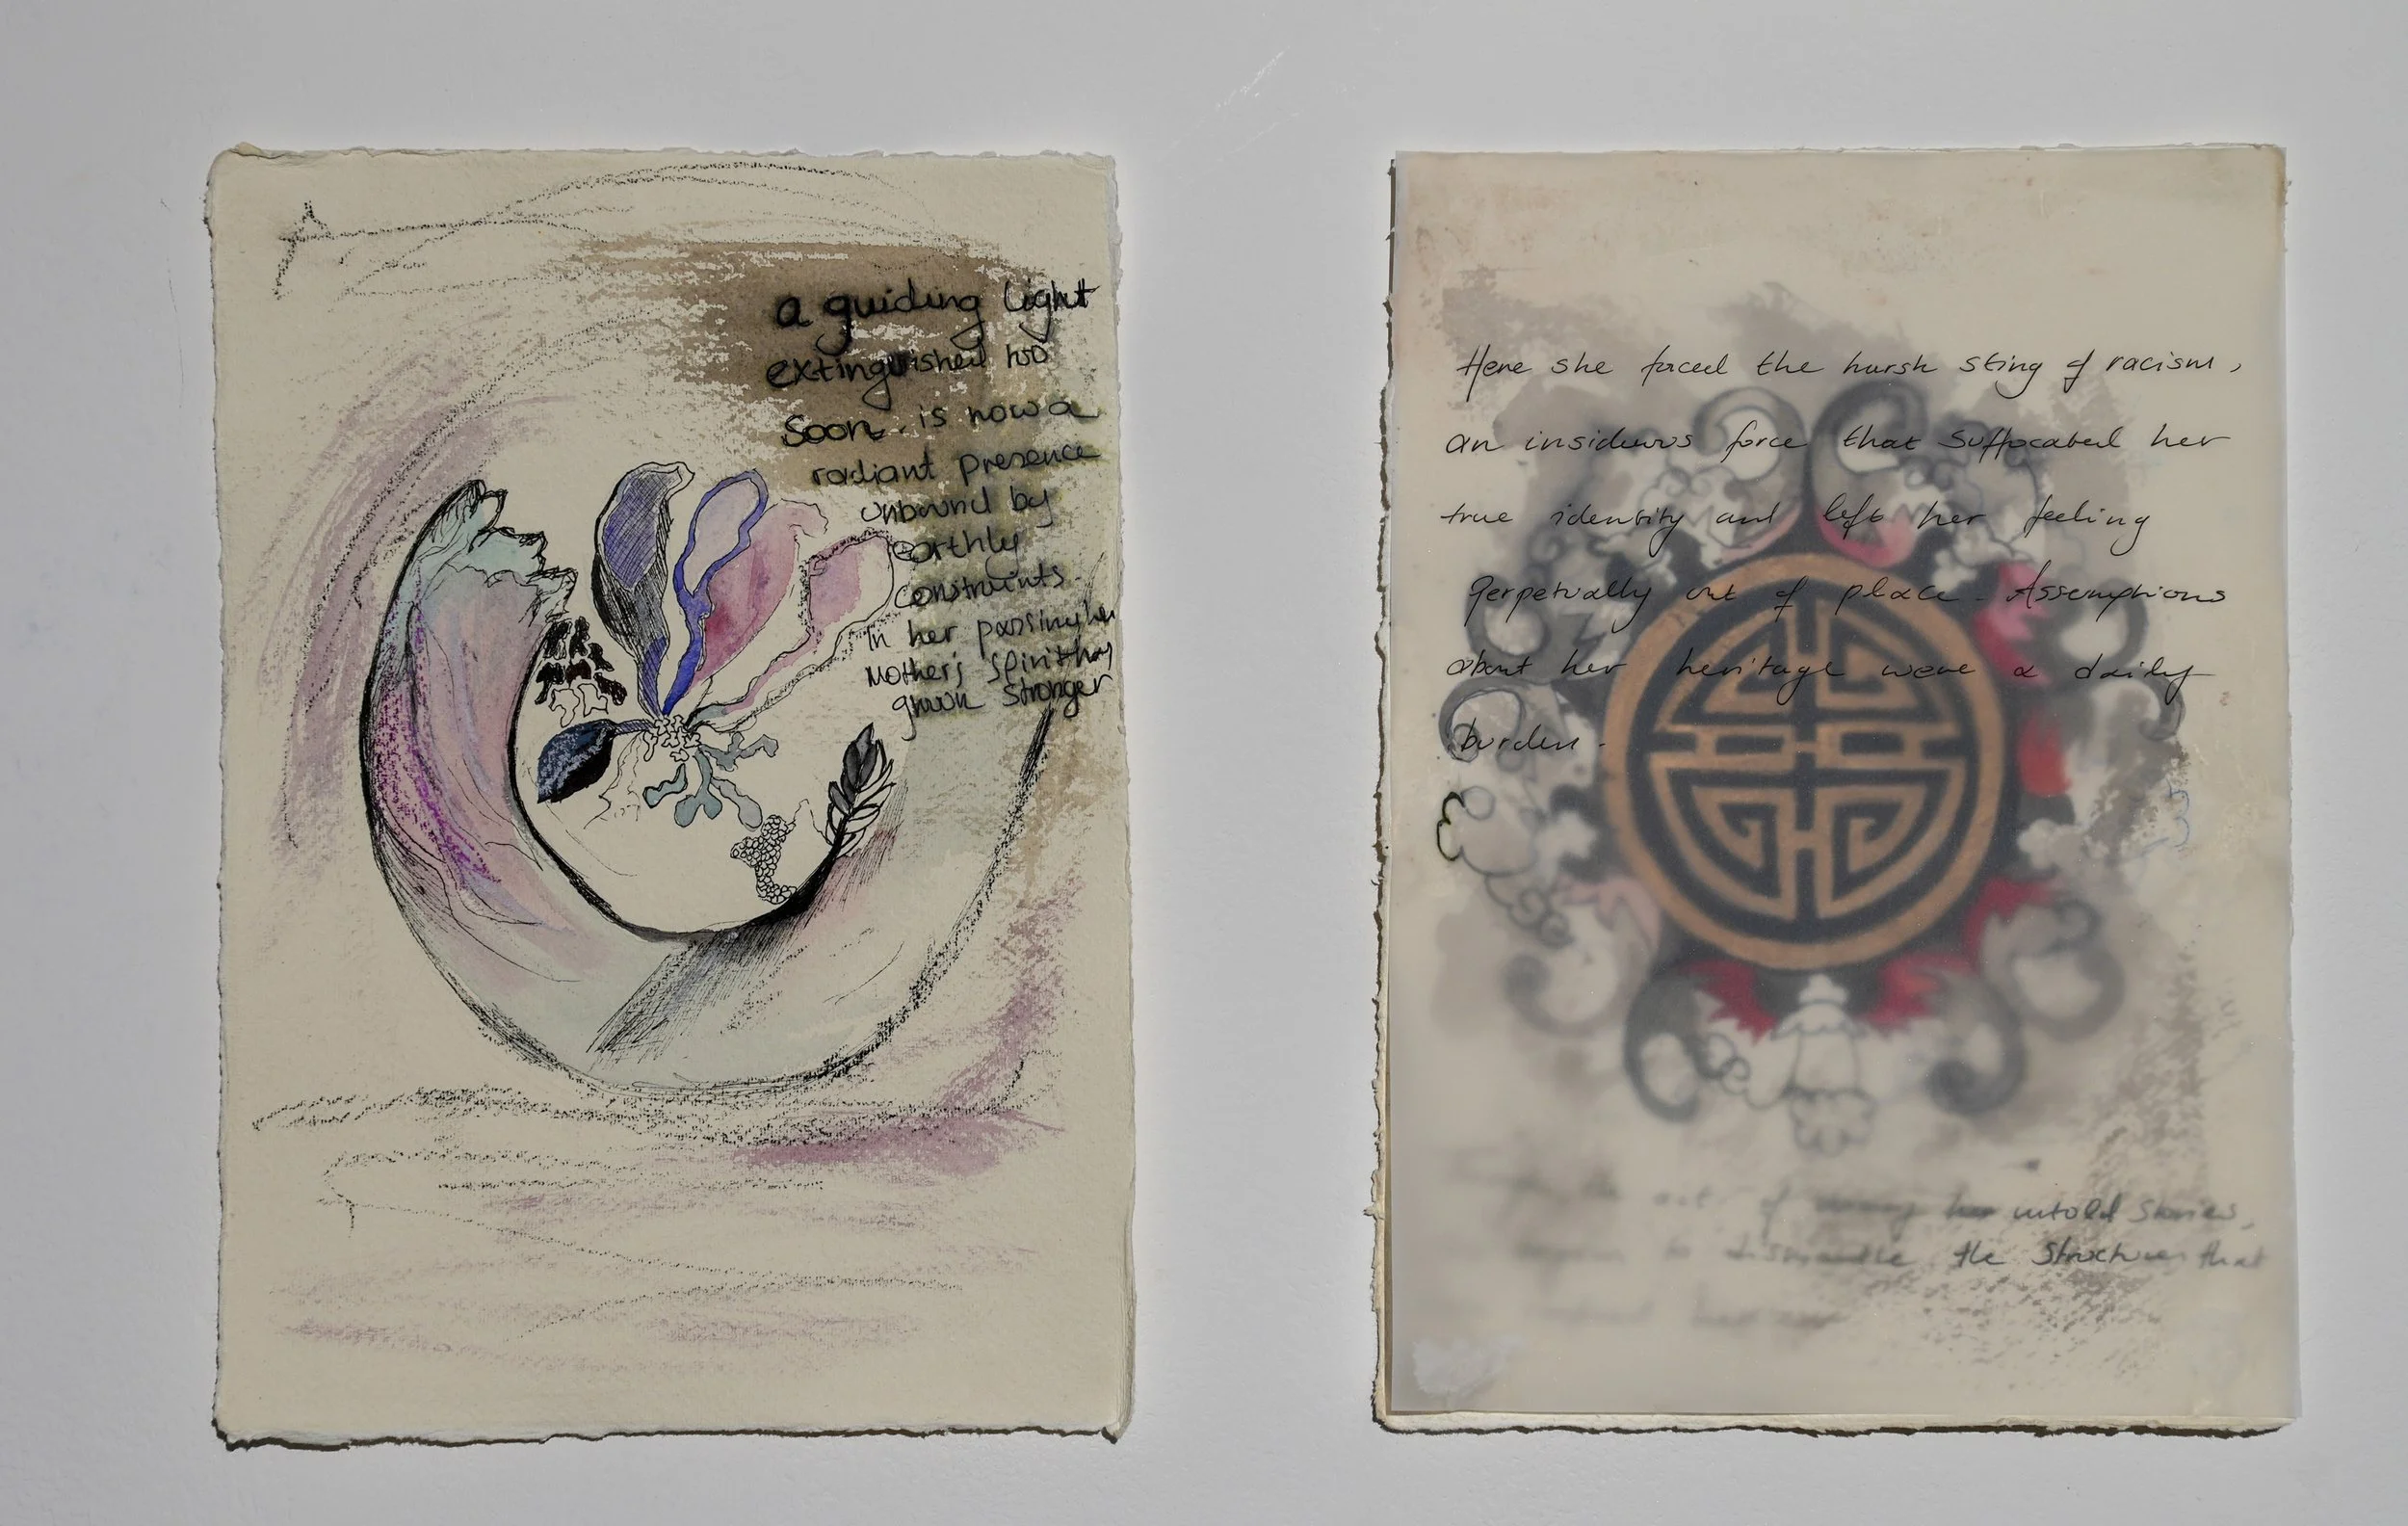 a guiding light
extinguished too
Soon, is now a
radiant presence
unbound by
earthly
constraints.
In her passing her
Mother's spirit has
grown stronger
Here she faced the harsh sting of racism,
an insidious force that suffocated her
true identity and left her feeling
perpetually out of place. Assumptions
about her heritage were a daily
burden.
the act of her untold stories,
to dismantle the structures that